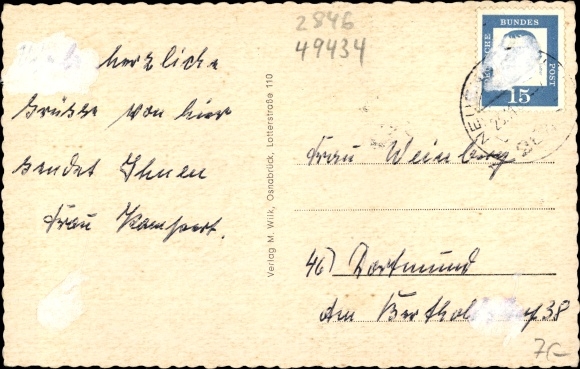 2846
49434
herzliche
Grüsse von hier
sendet Ihnen
Frau Kampert.
Verlag M. Wilk, Osnabrück, Lotterstraße 110
DEUTSCHE BUNDESPOST
15
Frau Weinberg
46) Dortmund
Am Berthol 38
7,-